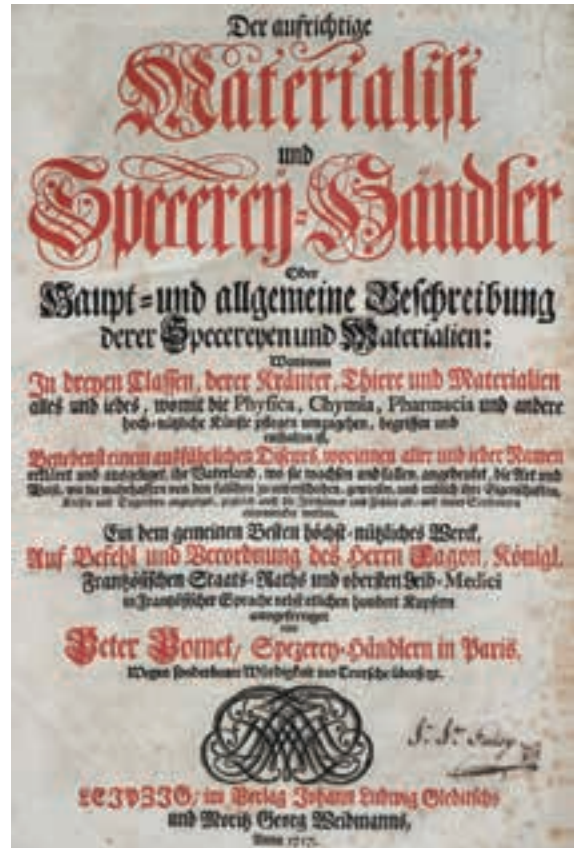 Der aufrichtige
Materialist
und
Specerey-Händler
Oder
Haupt- und allgemeine Beschreibung
derer Specereyen und Materialien:
Worinnen
In dreyen Classen, derer Kräuter, Thiere und Materialien
alles und iedes, womit die Physica, Chymia, Pharmacia und andere
hoch-nützliche Künste pflegen umzugehen, begriffen und
enthalten ist,
Benebenst einem ausführlichen Discurs, worinnen aller und ieder Namen
erkläret und ausgeleget, ihr Vaterland, wo sie wachsen und fallen, angedeutet, die Art und
Weise, wie die wahrhafften von den falschen zu unterscheiden, gewiesen, und endlich ihre Eigenschafften,
Kräffte und Tugenden angezeiget,
Ein dem gemeinen Besten höchst-nützliches Werck,
Auf Befehl und Verordnung des Herrn Fagon, Königl.
Frantzösischen Staats-Raths und obersten Leib-Medici
in Frantzösischer Sprache nebst etlichen hundert Kupfern
ausgefertiget
von
Peter Pomet/ Spezerey-Händlern in Paris,
Wegen sonderbarer Würdigkeit ins Teutsche übersetzt.
LEIPZIG/ im Verlag Johann Ludwig Gleditschs
und Moritz Georg Weidmanns,
Anno 1717.